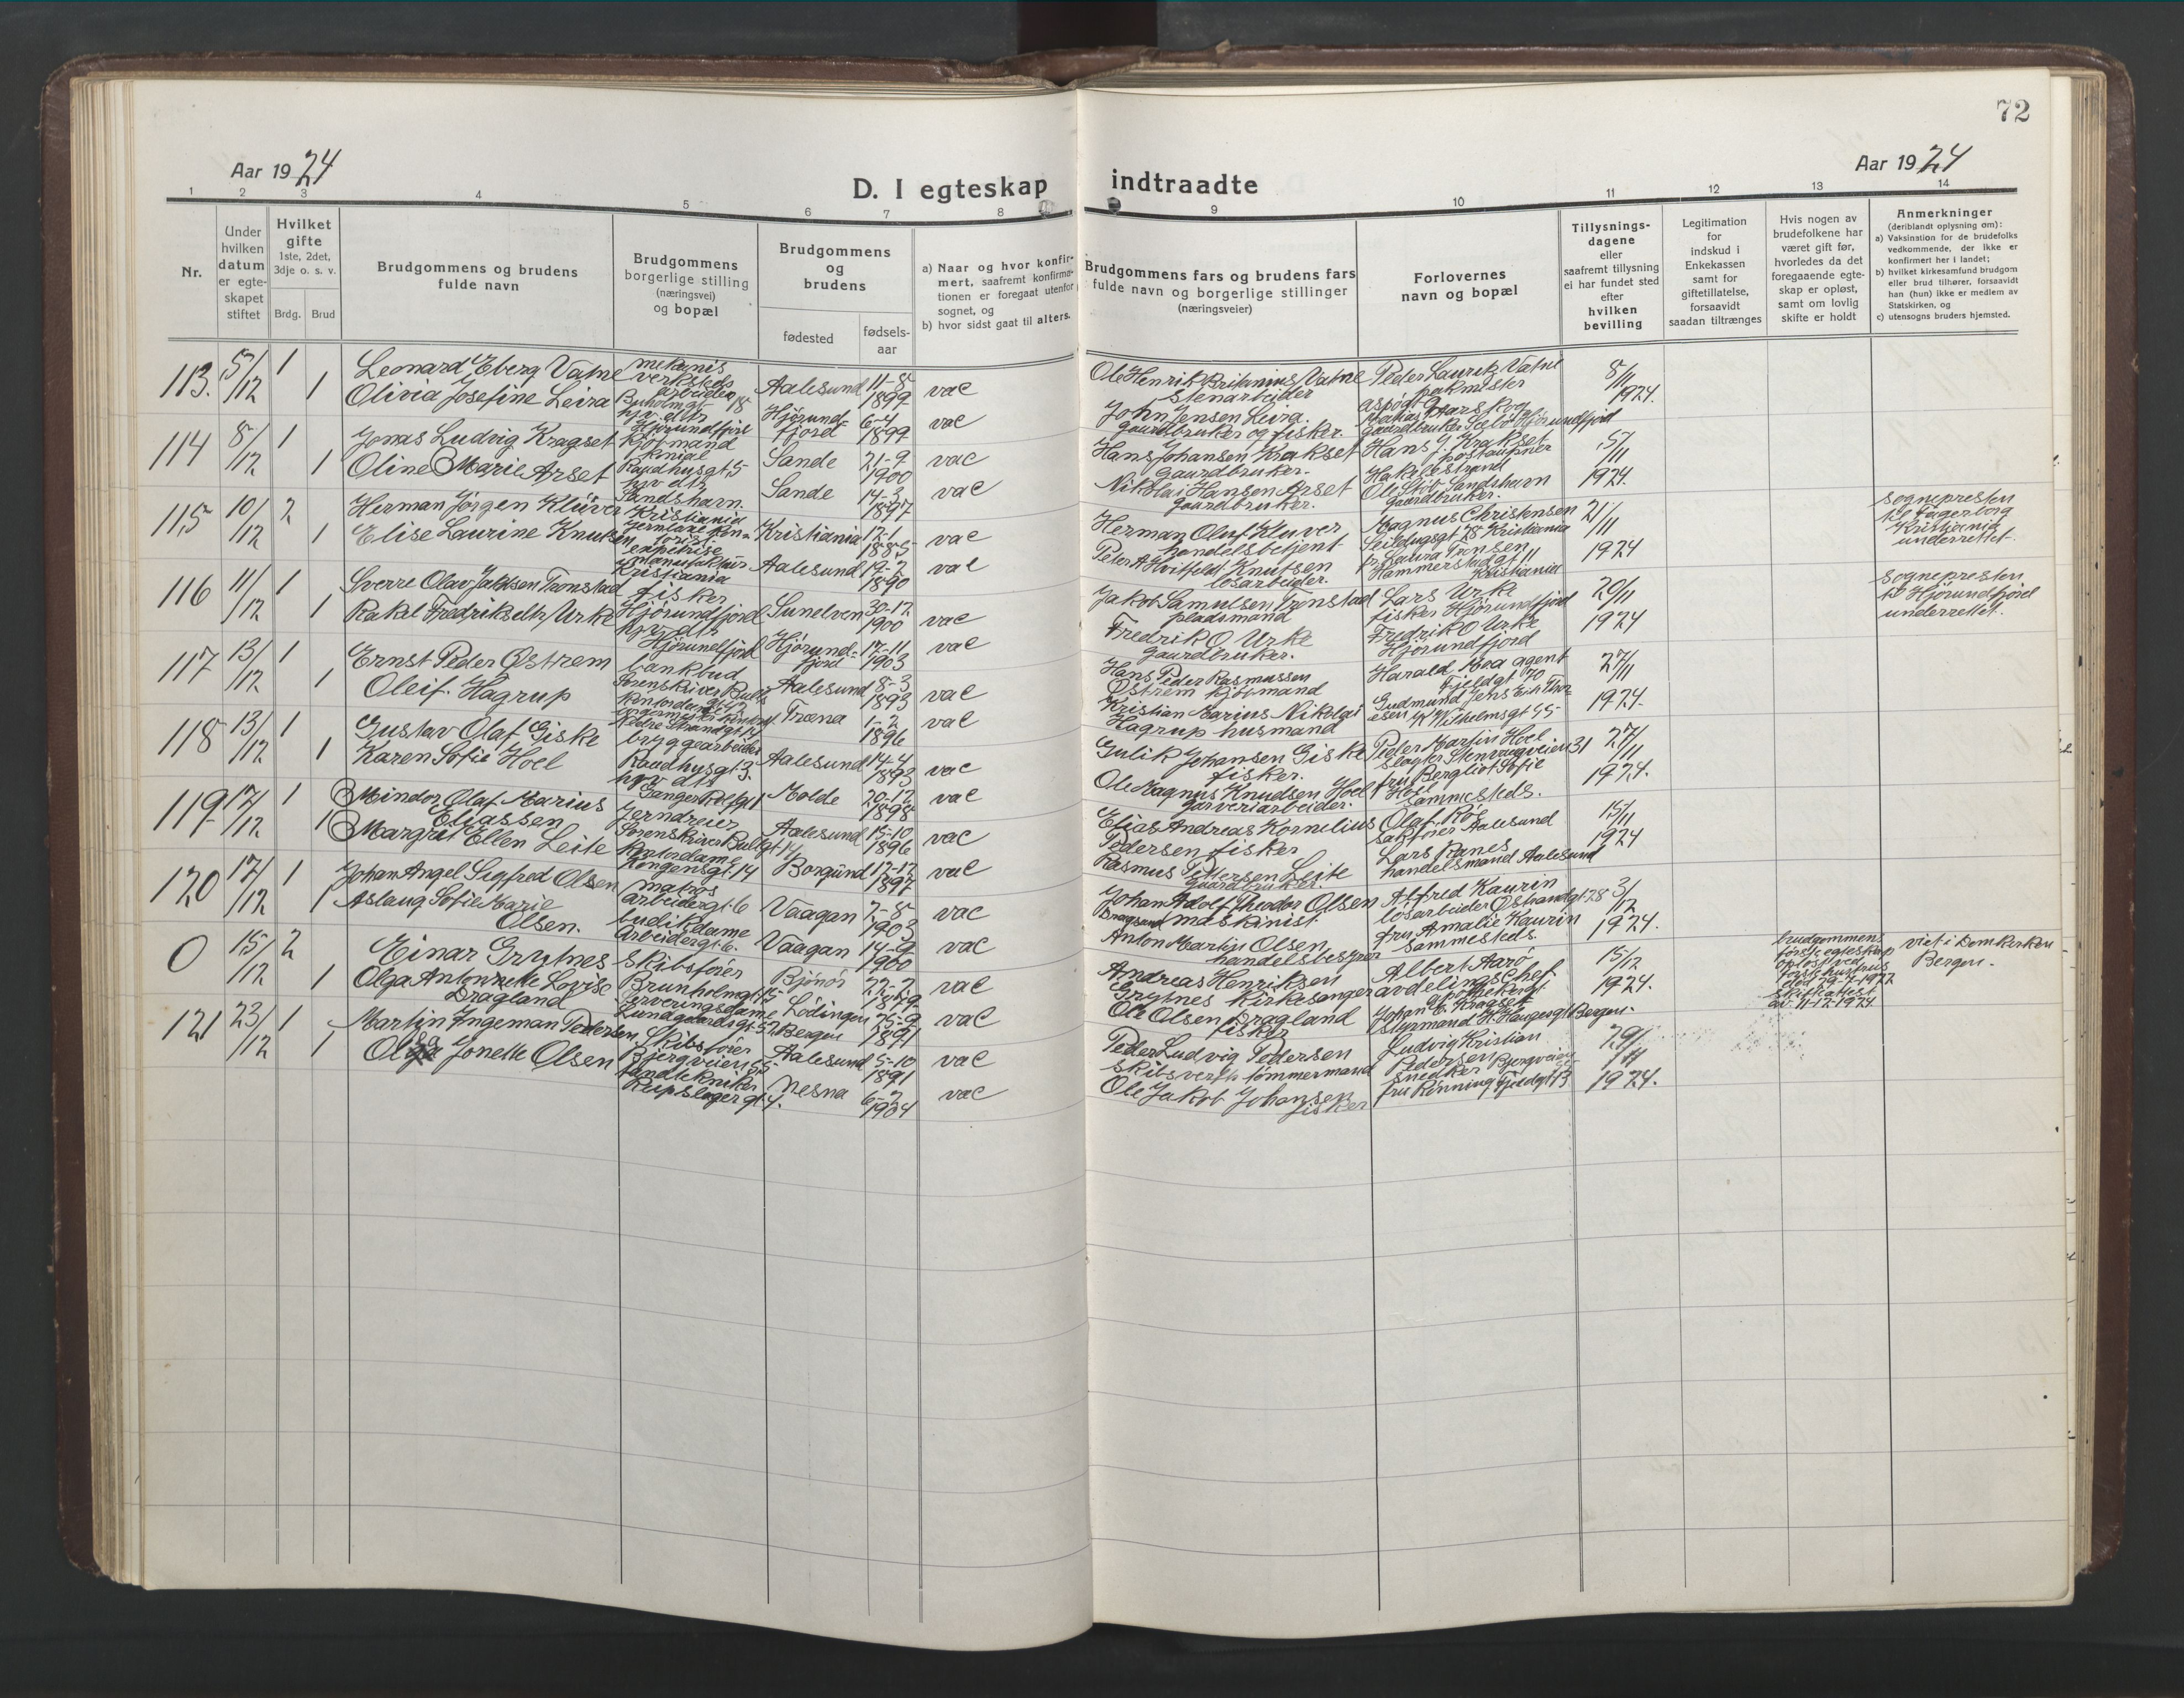 72
Aar 1924
Aar 1924
D. I egteskap indtraadte
1 2 3 4 5 6 7 8 9 10 11 12 13 14
Nr.
Under hvilken datum er egteskapet stiftet
Hvilket gifte 1ste, 2det, 3dje o. s. v.
Brdg. Brud
Brudgommens og brudens fulde navn
Brudgommens borgerlige stilling (næringsvei) og bopæl
Brudgommens og brudens
fødested
fødselsaar
a) Naar og hvor konfirmert, saafremt konfirmationen er foregaat utenfor sognet, og
b) hvor sidst gaat til alters.
Brudgommens fars og brudens fars fulde navn og borgerlige stillinger (næringsveier)
Forlovernes navn og bopæl
Tillysningsdagene eller saafremt tillysning ei har fundet sted efter hvilken bevilling
Legitimation for indskud i Enkekassen samt for giftetillatelse, forsaavidt saadan tiltrænges
Hvis nogen av brudefolkene har været gift før, hvorledes da det foregaaende egteskap er opløst, samt om lovlig skifte er holdt
Anmerkninger (deriblandt oplysning om):
a) Vaksination for de brudefolks vedkommende, der ikke er konfirmert her i landet;
b) hvilket kirkesamfund brudgom eller brud tilhører, forsaavidt han (hun) ikke er medlem av Statskirken, og
c) utensogns bruders hjemsted.
113. 5/12 1 Leonard Eberg Vatne mekanis verksteds arbeider Buholmgt 18 Aalesund 11-8 1899 vac Ole Henrik Britanius Vatne stenarbeider Peder Lauritz Vatne pakmester 8/11 1924.
1 Olivia Josefine Leira Hjørundfjord Hjørundfjord 6-4 1899 vac John Jensen Leira. gaardbruker og fisker.
114 8/12 1 Jonas Ludvig Kragset kjøpmand Raadhusgt. 5 Sande 21-9 1900 vac Hans Johansen Krakset gaardbruker. Hans J. Krakset postaapner Hakallestrand 5/11 1924.
1 Oline Marie Arset Sandshavn. Sande 14-3 1897 vac Nikolai Hansen Arset gaardbruker. Ole Støb Sandshavn gaardbruker.
115 10/12 2 Herman Jørgen Klüver Kristiania Kristiania 12-1 1885 vac Herman Olaf Klüver handelsbetjent Magnus Christensen Seildugsgt 28 Kristiania 21/11 1924 sognepresten til Fagerborg Kristiania underrettet.
1 Elise Laurine Knutsen manufaktur Kristiania Aalesund 19-2 1890 vac Peter A Hvitfeldt Knutsen løsarbeider. fr. Laura Fransen Hammerstadgt 11 Kristiania
116 11/12 1 Sverre Olav Jakobsen Tronstad fisker Hjørundfjord Sunelven 30-12 1900 vac Jakob Samulsen Tronstad pladsmand Lars Urke fisker Hjørundfjord 20/11 1924 sognepresten til Hjørundfjord underrettet.
1 Rakel Fredriksdtr Urke Hjørundfjord Hjørundfjord 17-11 1903 vac Fredrik O Urke gaardbruker. Fredrik O Urke Hjørundfjord
117 13/12 1 Ernst Peder Østrem bankbud Aalesund 8-3 1893 vac Hans Peder Rasmussen Østrem kjøbmand Harald Rea agent Fjeldgt 70 27/11 1924.
1 Oleif. Hagrup Træna 1-2 1896 vac Kristian Marius Nikolai Hagrup husmand
118 13/12 1 Gustav Olaf Giske bryggearbeider Raadhusgt 3. Aalesund 14-4 1893 vac Gulik Johansen Giske fisker. Peder Martin Hoel slagter 27/11 1924.
1 Karen Sofie Hoel Ganger Rolfgt 1 Molde 20-12 1898 vac Ole Magnus Knudsen Hoel garveriarbeider. fru Bergliot Sofie Hoel sammesteds.
119 17/12 1 Mindor Olaf Marius Eliassen jerndreier Aalesund 15-10 1896 vac Elias Andreas Kornelius Pedersen fisker Olaf Røe sakfører Aalesund 15/11 1924
1 Margrit Ellen Leite kontordame Kongensgt. 14 Borgund 12-12 1897 vac Rasmus Pettersen Leite gaardbruker. Lars Ranes handelsmand Aalesund
120 17/12 1 Johan Angel Sigfred Olsen matros Arbeidergt. 6 Vaagan 7-8 1903 vac Johan Adolf Theodor Olsen maskinist Alfred Kaurin løsarbeider Østrandgt 28 3/12 1924.
1 Aslaug Sofie Marie Olsen. butikdame Arbeidergt. 6. Vaagan 14-9 1900 vac Anton Martin Olsen handelsbestyrer fru Amalie Kaurin sammesteds.
0 15/12 2 Einar Grytnes skibsfører Brunholmgt 15 Bjønør 22-2 vac Andreas Henriksen Grytnes kirkesanger Albert Aarø avdelingschef 15/12 1924. brudgommens første egteskap opløst ved første hustrus død 29-7-1922 skifteattest av 11-12-1924 viet i Domkirken Bergen.
1 Olga Antonette Lovise Dragland serveringsdame Lundgaardsgt. 52 Bergen Lödingen 25-9 1891 vac Ole Olsen Dragland fisker Johan E. Kragset styrmand H. Haugesgt Bergen.
121 23/12 1 Martin Ingeman Pedersen skibsfører Bjergveien 55 Aalesund 5-10 1891 vac Peder Ludvig Pedersen skibsverfs tømmermand Ludvig Kristian Pedersen snedker Bjergveien 29/11 1924.
1 Olga Jonette Olsen tandtekniker Repslagergt 4. Nesna 6-2 1904 vac Ole Jakob Johansen fisker fru Rønning Fjeldgt 13